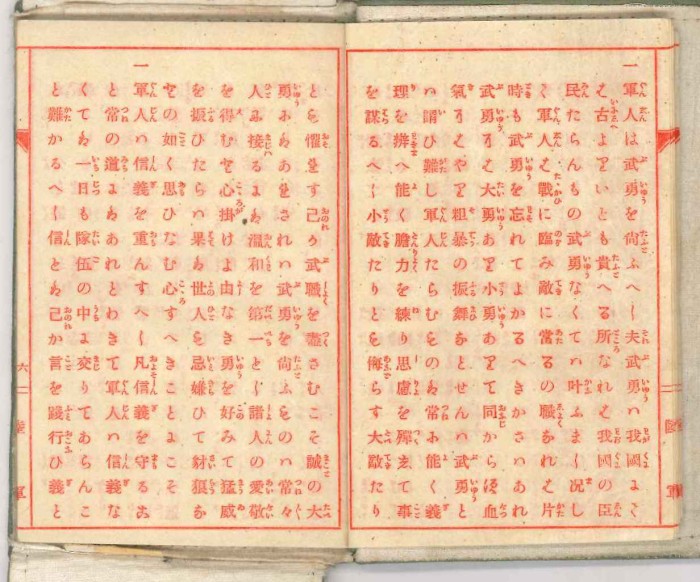 一軍人は武勇を尚ふへし夫武勇は我國にて
は古よりいとも貴へる所なれは我國の臣
民たらんもの武勇なくては叶ふまし況し
て軍人は戰に臨み敵に當るの職なれは片
時も武勇を忘れてよかるへきかさはあれ
武勇には大勇あり小勇ありて同からす血
氣にはやり粗暴の振舞なとせんは武勇と
は謂ひ難し軍人たらむものは常に能く義
理を辨へ能く膽力を練り思慮を殫して事
を謀るへし小敵たりとも侮らす大敵たり
とも懼れす己か武職を盡さむこそ誠の大
勇にはあれされは武勇を尚ふものは常々
人に接るには温和を第一とし諸人の愛敬
を得むと心掛けよ由なき勇を好みて猛威
を振ひたらは果は世人も忌嫌ひて豺狼な
との如く思ひなむ心すへきことにこそ
一軍人は信義を重んすへし凡信義を守るこ
と常の道にはあれとわきて軍人は信義な
くては一日も隊伍の中に交りてあらんこ
と難かるへし信とは己か言を踐行ひ義と
六 陸軍